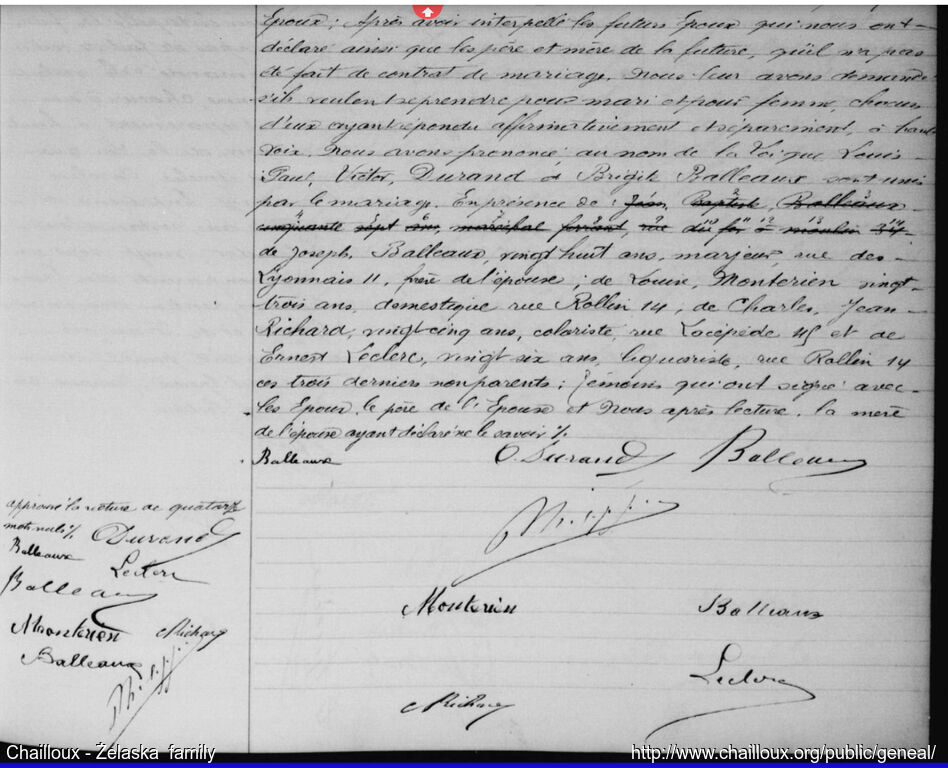 Epoux; Après avoir interpellé les futurs Epoux qui nous ont
déclaré ainsi que les père et mère de la future, qu'il n'a pas
été fait de contrat de mariage, Nous leur avons demandé
s'ils veulent se prendre pour mari et pour femme, chacun
d'eux ayant répondu affirmativement et séparément, à haute
voix, Nous avons prononcé au nom de la Loi que Louis
Paul, Victor, Durand et Brigite Balleaux sont unis
par le mariage. En présence de : Jean, Baptiste, Balleaux
cinquante sept ans, maréchal ferrant, rue du fer à moulin 34
de Joseph, Balleaux, vingt huit ans, marjeur, rue des
Lyonnais 11, frère de l'épouse; de Louise, Monterien vingt
trois ans, domestique rue Rollin 14, de Charles, Jean
Richard, vingt cinq ans, coloriste, rue Lacépède 45 et de
Ernest Leclerc, vingt six ans, liquoriste, rue Rollin 14
ces trois derniers non parents; Témoins qui ont signé avec
les Epoux, le père de l'Epouse et Nous après lecture, la mère
de l'épouse ayant déclaré ne le savoir ./.
Balleaux O. Durand Balleaux
approuvé la rature de quatorze
mots nuls ./. Durand
Balleaux Leclerc
Balleaux
Monterien Balleaux
Monterien Richard
Balleaux
Leclerc
Richard
Chailloux - Zelaska family http://www.chailloux.org/public/geneal/